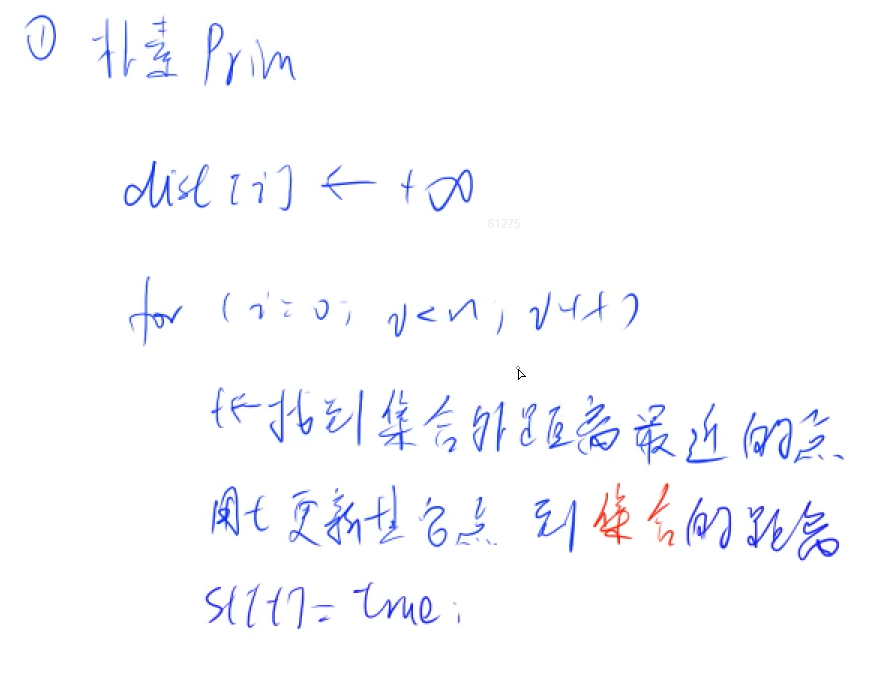 ① 朴素 Prim
dist[i] ← +∞
61275
for (i=0; i<n; i++)
t←找到集合外距离最近的点
用t更新其它点 到集合的距离
st[t]=true;